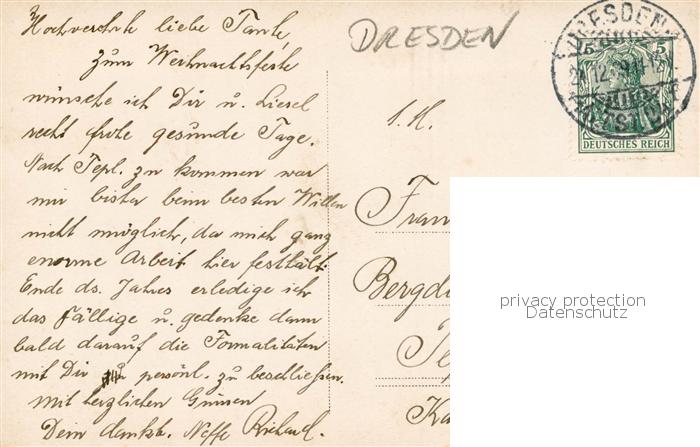 Hochverehrte liebe Tante,
zum Weihnachtsfeste
wünsche ich Dir u. Liesel
recht frohe gesunde Tage.
Nach Tepl. zu kommen war
mir bisher beim besten Willen
nicht möglich, da mich ganz
enorme Arbeit hier festhält.
Ende ds. Jahres erledige ich
das Fällige u. gedenke dann
bald darauf die Formalitäten
mit Dir persönl. zu beschließen.
Mit herzlichen Grüssen
Dein dankb. Neffe Richard.
DRESDEN
DRESDEN
ALTST.
5
DEUTSCHES REICH
Bergdi
privacy protection
Datenschutz